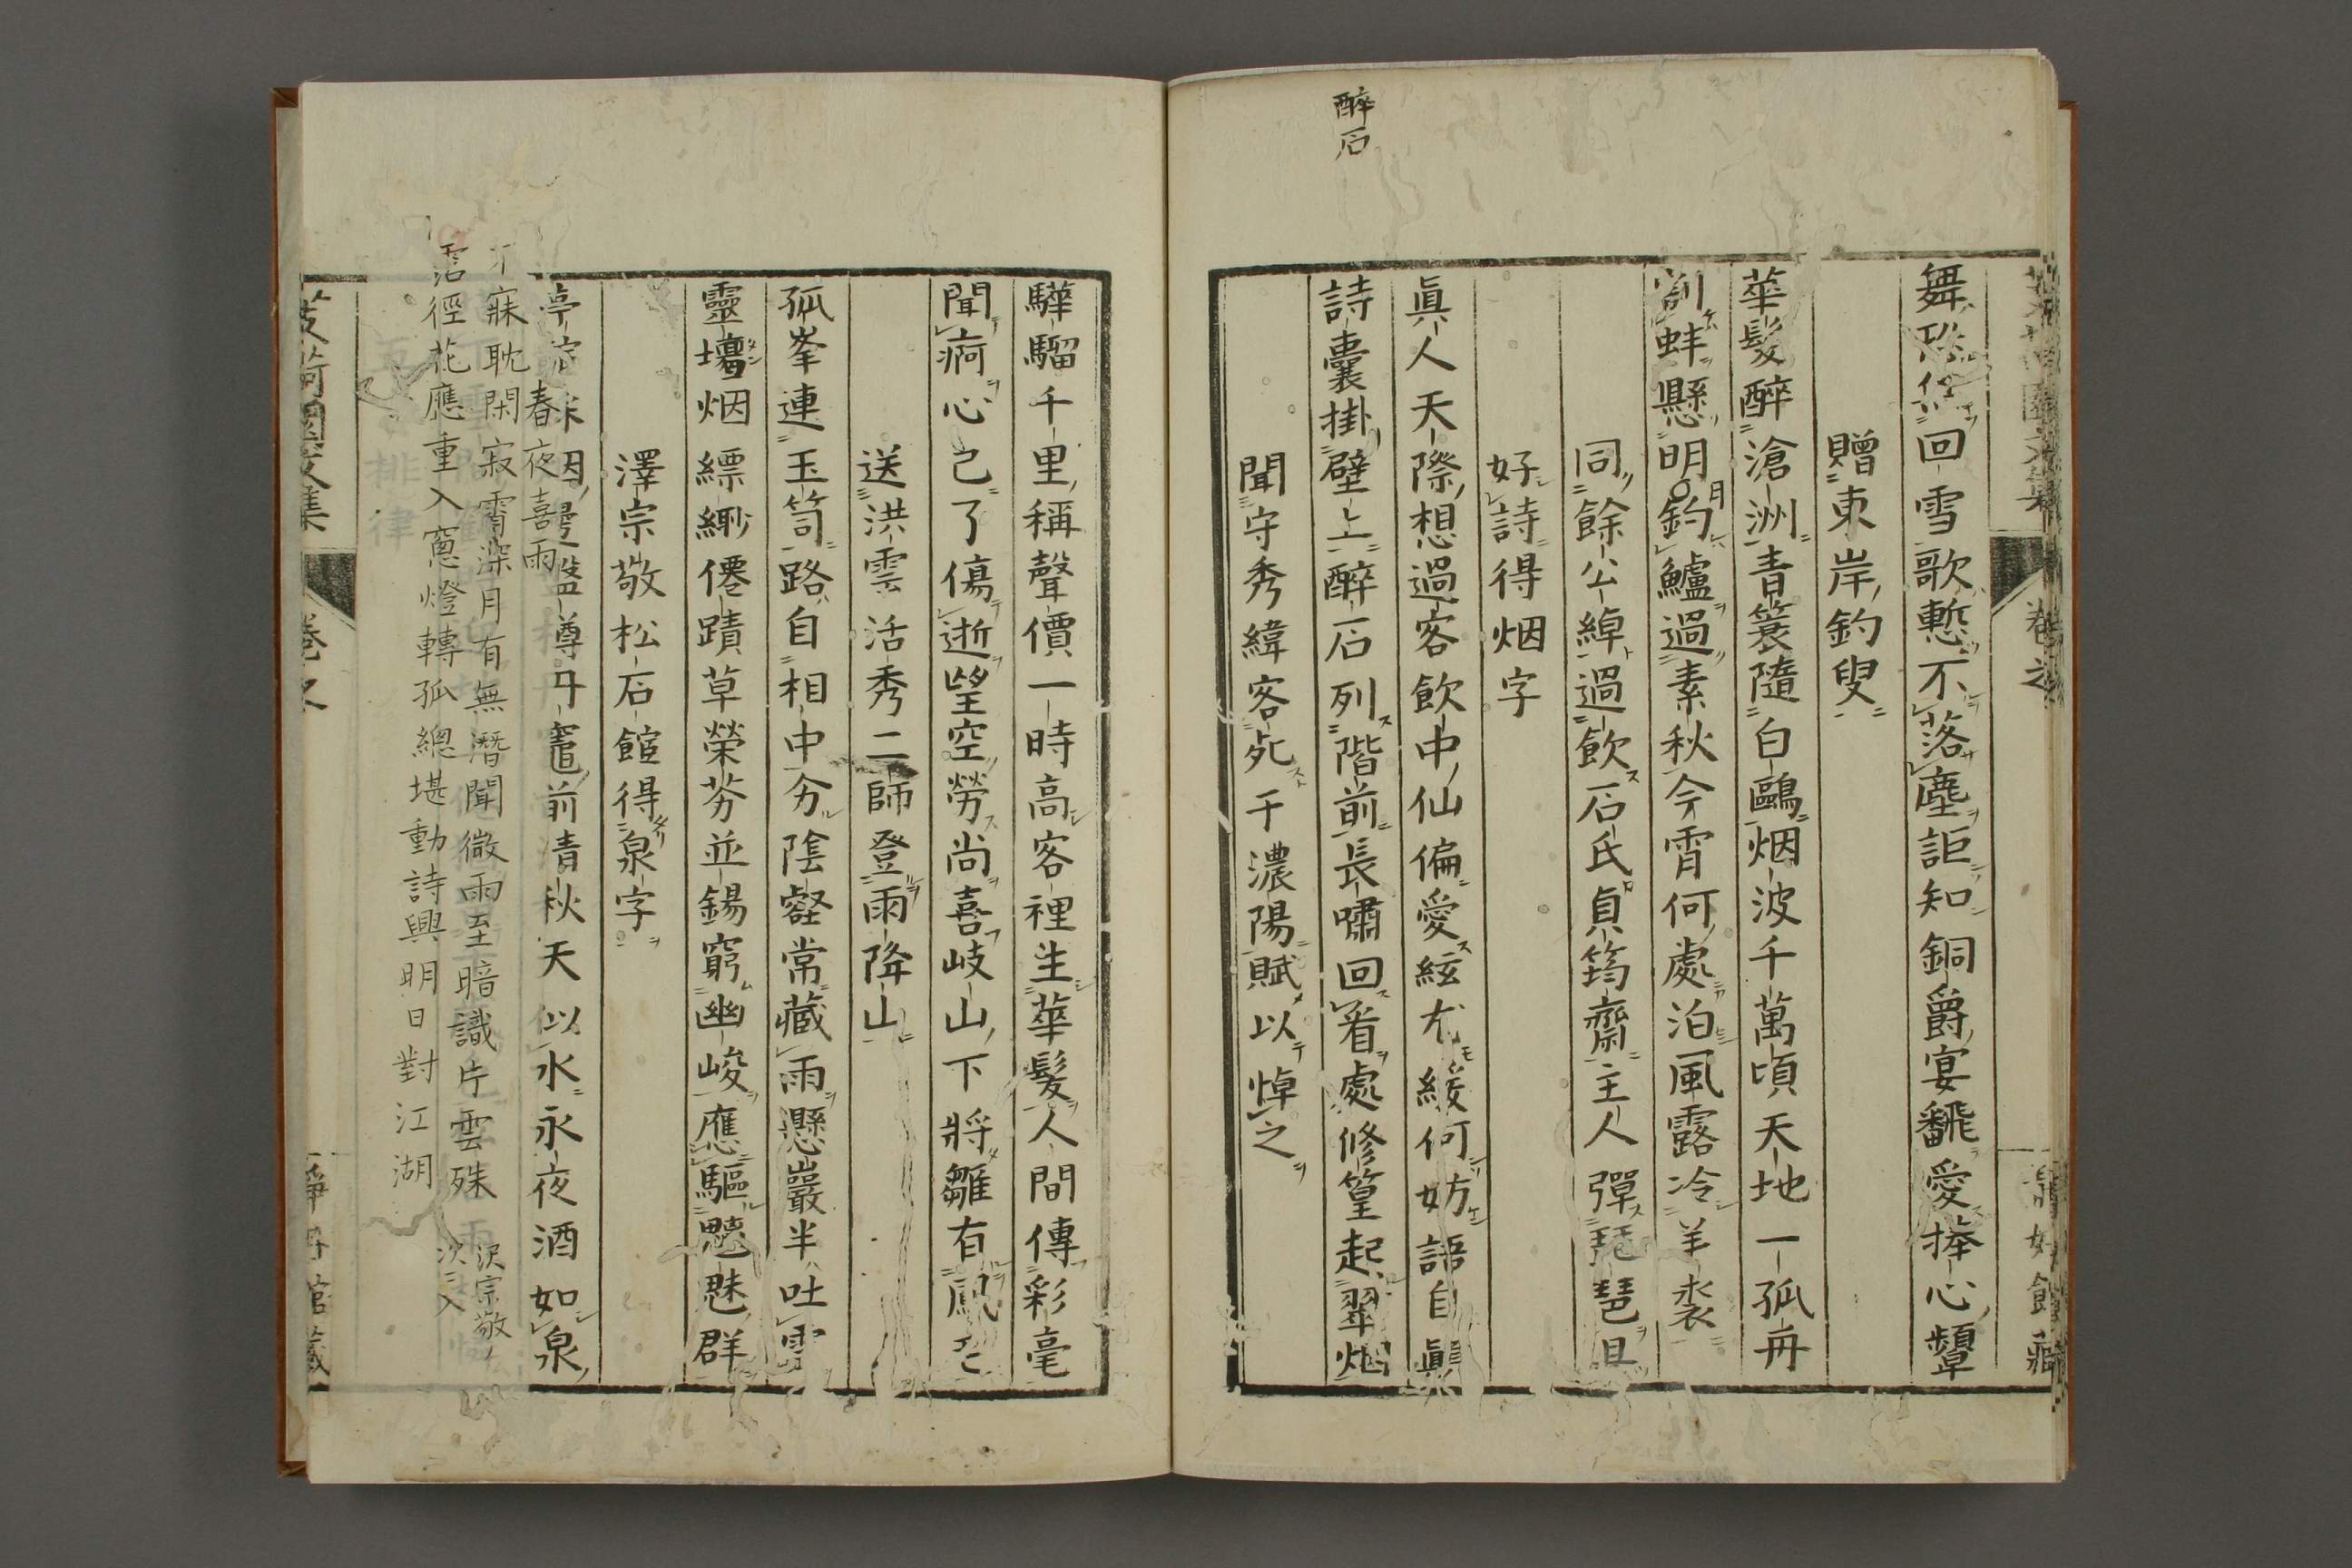 醉石
舞回雪歌慙不落塵詎知銅爵宴飜愛捧心顰
贈東岸釣叟
華髮醉滄洲青簑隨白鷗烟波千萬頃天地一孤舟
割蚌懸明月釣鱸過素秋今霄何處泊風露冷羊裘
同餘公綽過飲石氏貞筠齋主人彈琵琶且
好詩得烟字
眞人天際想過客飲中仙偏愛絃尤緩何妨語自顚
詩囊掛壁上醉石列階前長嘯回看處修篁起翠烟
聞守秀緯客死于濃陽賦以悼之
驊騮千里稱聲價一時高客裡生華髮人間傳彩毫
聞痾心已了傷逝望空勞尚喜岐山下將雛有鳳毛
送洪雲活秀二師登雨降山
孤峯連玉笥路自相中分陰壑常藏雨懸巖半吐雲
靈壇烟縹緲僊蹟草榮芬並錫窮幽峻應驅魑魅群
澤宗敬松石館得泉字
亭前清秋天似水永夜酒如泉
春夜喜雨
寐耽閑寂霄深月有無潛聞微雨至暗識片雲殊
沾徑花應重入窻燈轉孤總堪動詩興明日對江湖
沢宗敬
次ニ入
園文集
卷之
館藏